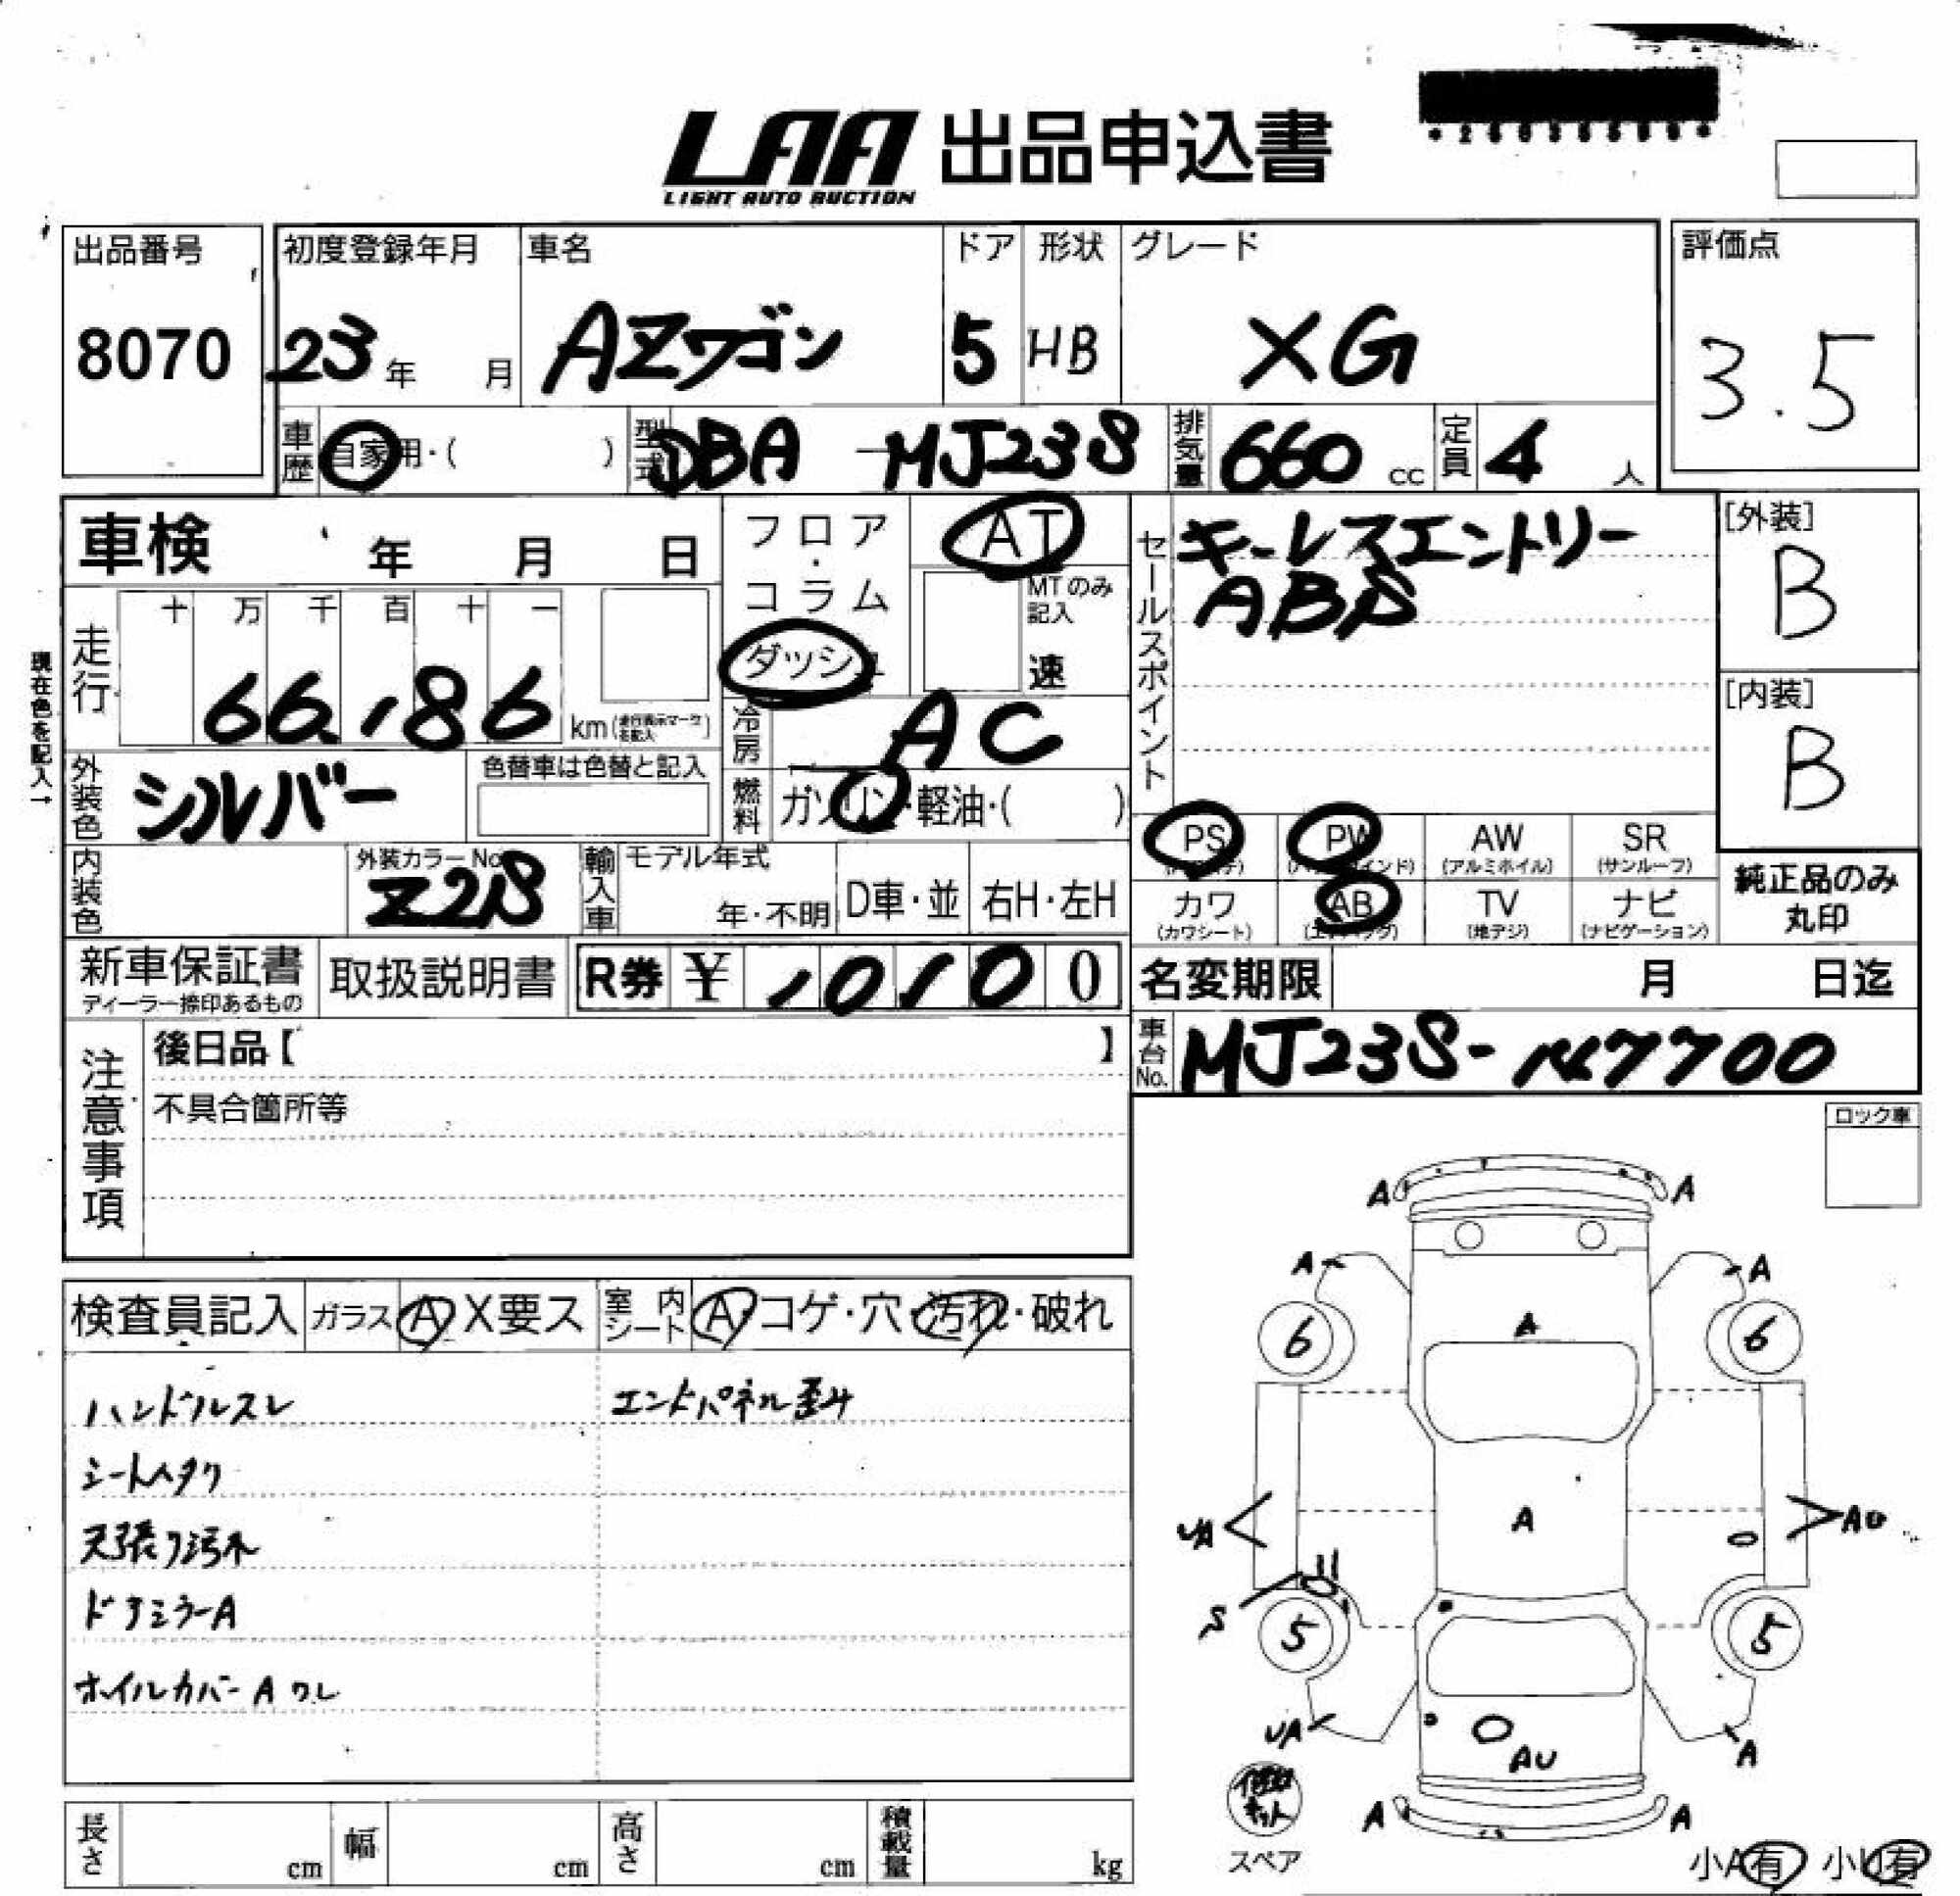 LAA 出品申込書
LIGHT AUTO AUCTION
出品番号
8070
初度登録年月
23年 月
車名
AZワゴン
ドア
5
形状
HB
グレード
XG
評価点
3.5
車歴 自家用・( )
型式 DBA-MJ23S
排気量 660 cc
定員 4 人
車検 年 月 日
フロア・コラム
ダッシュ
AT
MTのみ記入
速
セールスポイント
キーレスエントリー
ABS
[外装]
B
[内装]
B
現在色を記入→
走行
十 万 千 百 十 一
66,186 km(走行表示マークを記入)
冷房 AC
燃料 ガソリン・軽油・( )
外装色 シルバー
色替車は色替と記入
内装色
外装カラーNo.
Z2S
輸入車
モデル年式
年・不明
D車・並
右H・左H
PS
PW
AW
(アルミホイル)
SR
(サンルーフ)
カワ
(カワシート)
AB
(エアバッグ)
TV
(地デジ)
ナビ
(ナビゲーション)
純正品のみ
丸印
新車保証書
ディーラー捺印あるもの
取扱説明書
R券 ¥ 10100
名変期限 月 日迄
車台No. MJ23S-147700
注意事項
後日品【 】
不具合箇所等
ロック車
検査員記入 ガラス A X要ス 室内シート A・コゲ・穴・汚れ・破れ
ハンドルスレ
エンドパネル歪み
シートヘタリ
天張り汚れ
ドアミラーA
ホイルカバーAワレ
A A
A A
6 A 6
UA A AU
S
5 5
UA AU A
A A
修理キット
スペア
小A有 小U有
長さ cm 幅 cm 高さ cm 積載量 kg